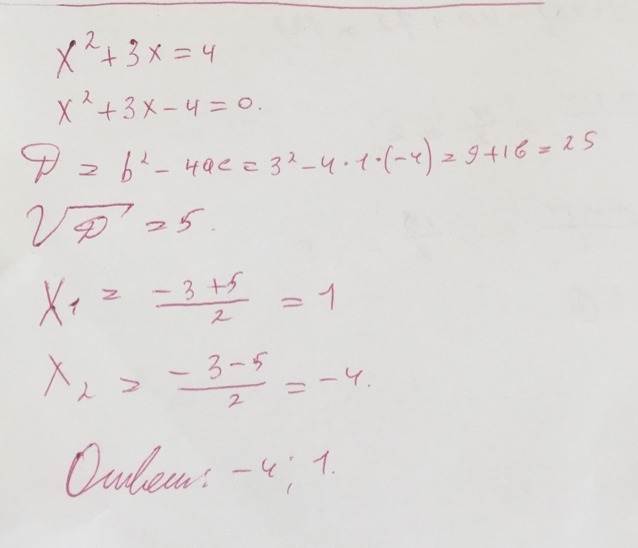 x² + 3x = 4
x² + 3x - 4 = 0.
D = b² - 4ac = 3² - 4 · 1 · (-4) = 9 + 16 = 25
√D = 5.
x₁ = (-3 + 5)/2 = 1
x₂ = (-3 - 5)/2 = -4.
Ответ: -4; 1.